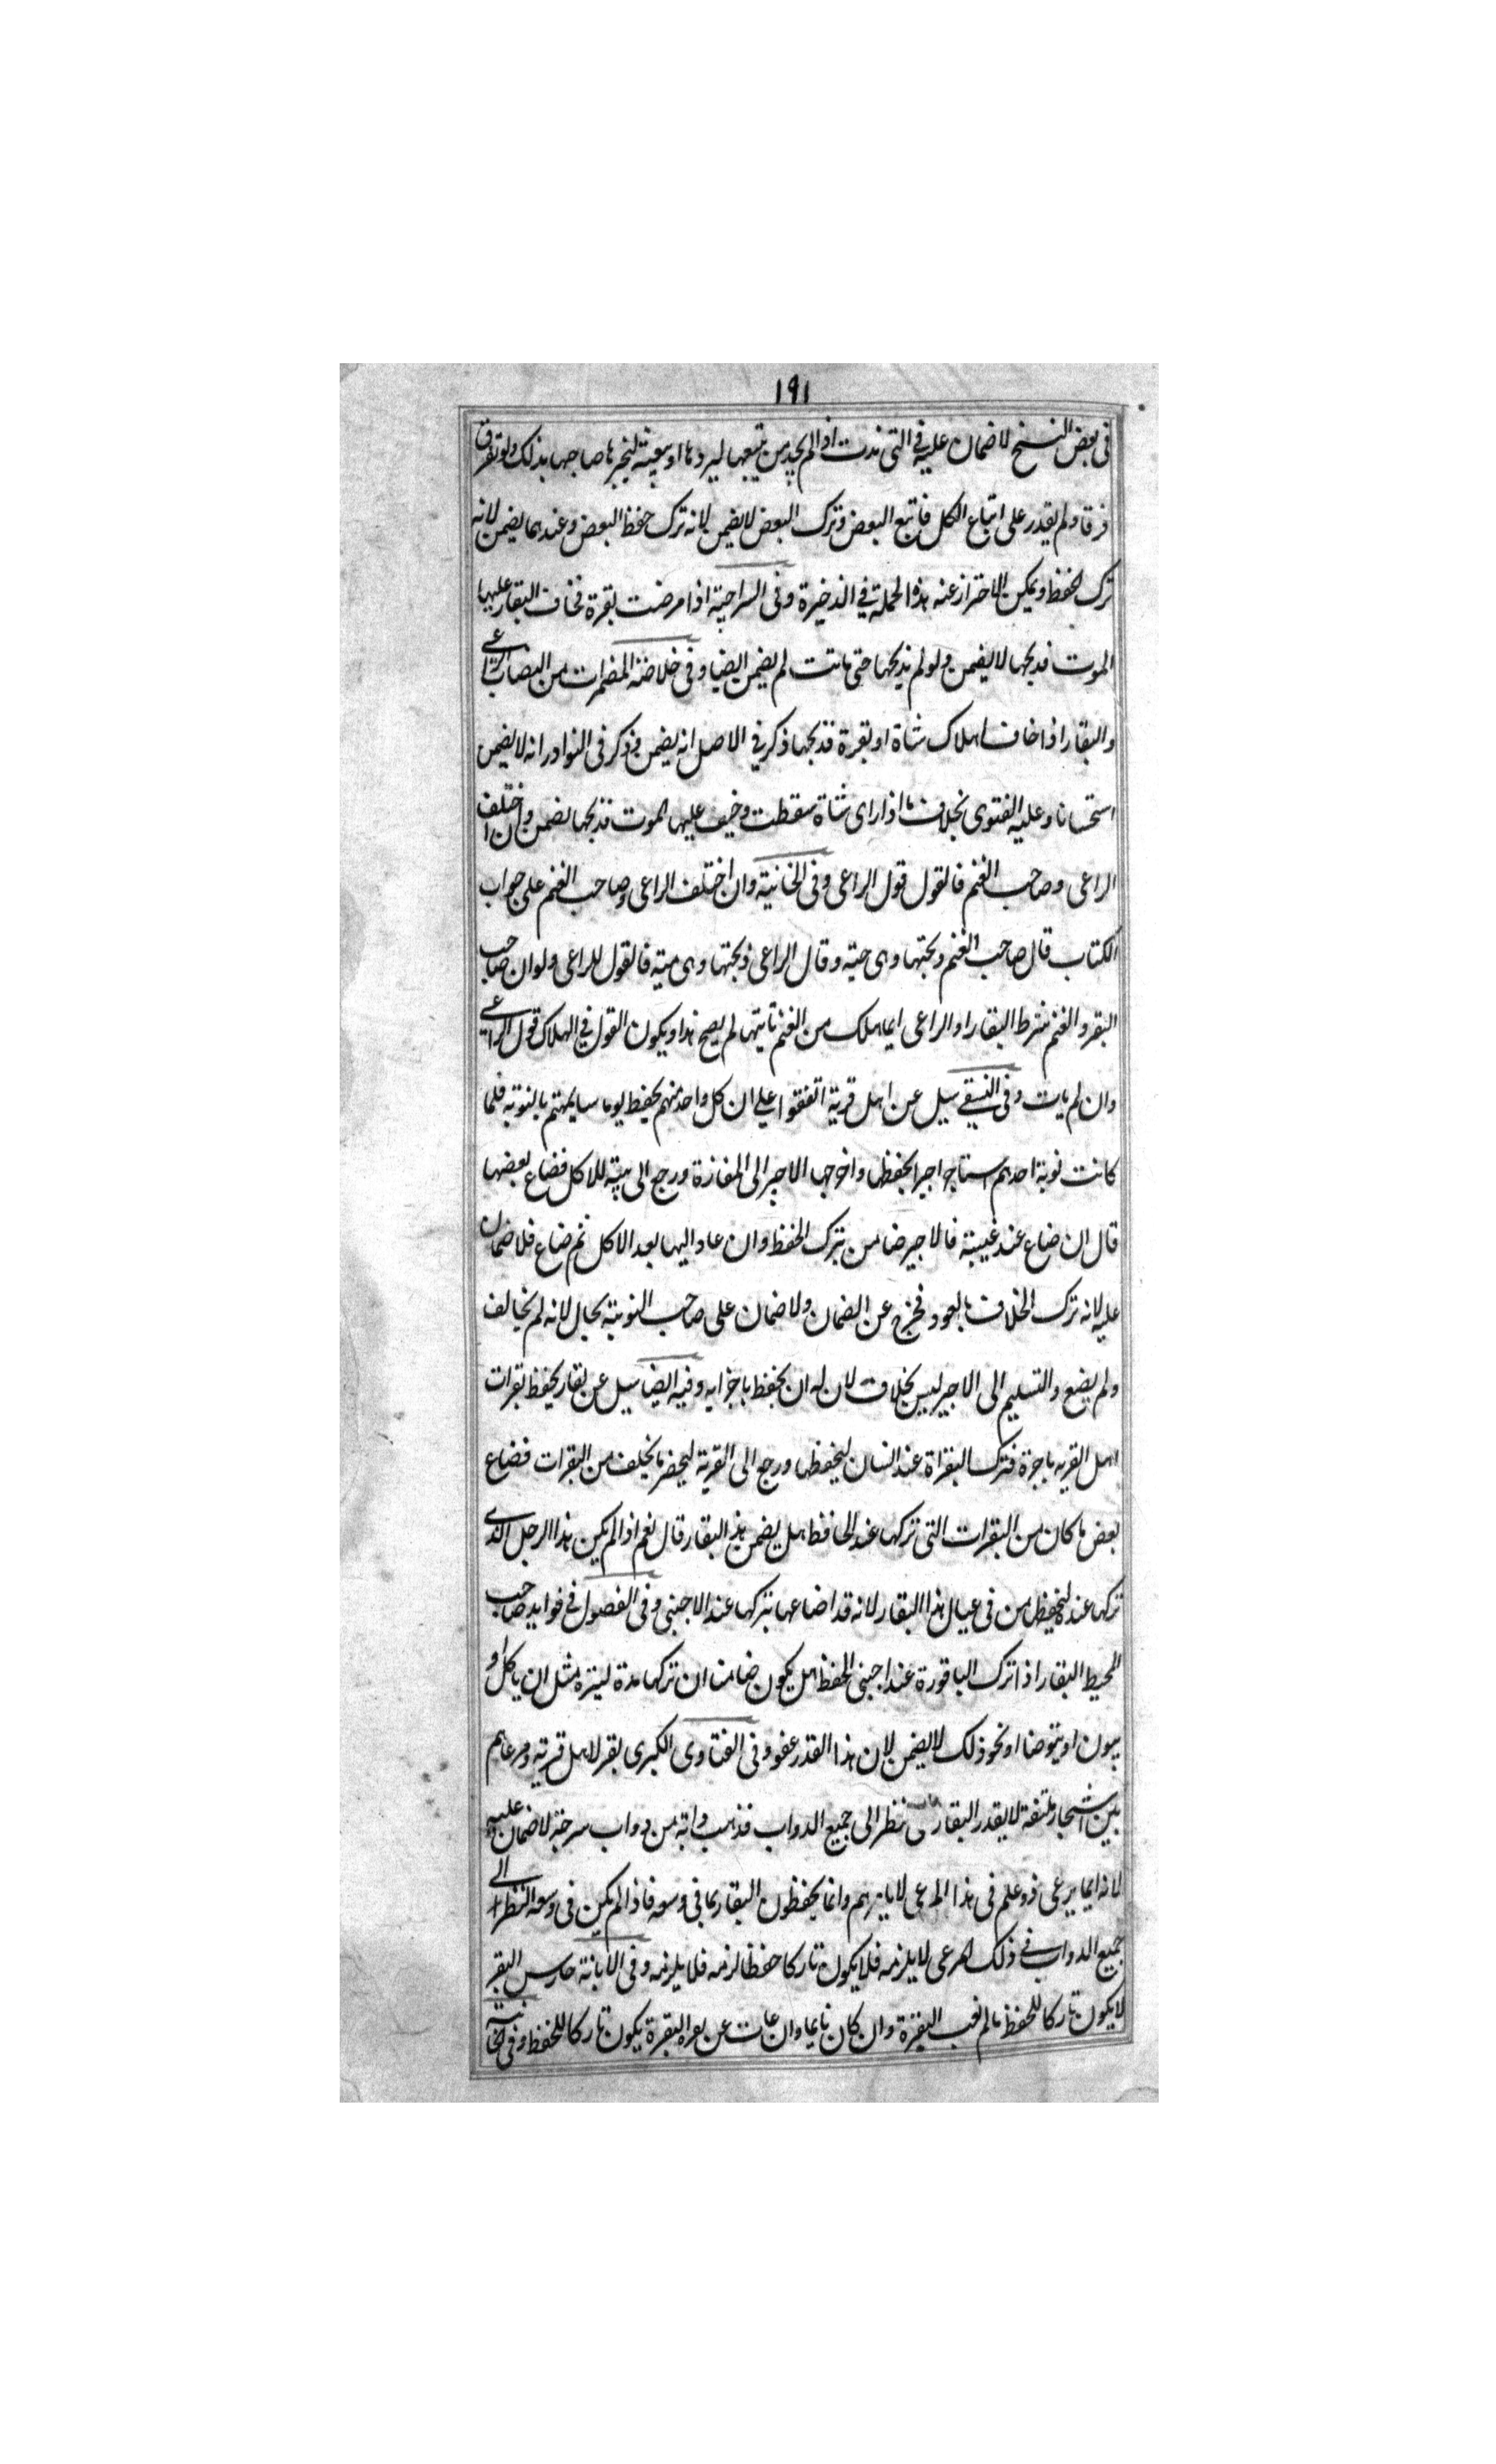 ١٩١
فى بعض النسخ لا ضمان عليه فى التى ندت اذا لم يجد من يتبعها ليردها او يبعثه ليخبر صاحبها بذلك ولو تفرق
فرقا ولم يقدر على اتباع الكل فاتبع البعض وترك البعض لا يضمن لانه ترك حفظ البعض وعندهما يضمن لانه
ترك الحفظ ويمكن الاحتراز عنه هذه الجملة في الذخيرة وفى السراجية اذا مرضت بقرة فخاف البقار عليها
الموت فذبحها لا يضمن ولو لم يذبحها حتى ماتت لم يضمن ايضا وفى خلاصة المضمرات من النصاب الراعى
والبقار اذا خاف هلاك شاة او بقرة فذبحها ذكر في الاصل انه يضمن وذكر فى النوادر انه لا يضمن
استحسانا وعليه الفتوى بخلاف ما اذا راى شاة سقطت وخيف عليها الموت فذبحها يضمن وان اختلف
الراعى وصاحب الغنم فالقول قول الراعى وفى الخانية وان اختلف الراعى وصاحب الغنم على جواب
الكتاب قال صاحب الغنم ذبحتها وهى حية وقال الراعى ذبحتها وهى ميتة فالقول للراعى ولو ان صاحب
البقر والغنم شرط البقار او الراعى ايما هلك من الغنم تاتيها لم يصح هذا ويكون القول في الهلاك قول الراعى
وان لم يات وفى النسفي سيل عن اهل قرية اتفقوا على ان كل واحد منهم يحفظ يوما سايمتهم بالنوبة فلما
كانت نوبة احدهم استاجر اجيرا لحفظها واخرجها الاجير الى المفازة ورجع الى بيته للاكل فضاع بعضها
قال ان ضاع عند غيبته فالاجير ضامن بترك الحفظ وان عاد اليها بعد الاكل ثم ضاع فلا ضمان
عليه لانه ترك الخلاف بالعود فخرج عن الضمان ولا ضمان على صاحب النوبة بحال لانه لم يخالف
ولم يضع والتسليم الى الاجير ليس بخلاف لان له ان يحفظ باجرايه وفيه ايضا سيل عن بقار يحفظ بقرات
اهل القريه باجرة فترك البقراة عند انسان ليحفظها ورجع الى القرية ليحضر ما تخلف من البقرات فضاع
بعض ما كان من البقرات التى تركها عند الحافظ هل يضمن هذا البقار قال نعم اذا لم يكن هذا الرجل الذى
تركها عنده ليحفظ من فى عيال هذا البقار لانه قد اضاعها بتركها عند الاجنبى وفى الفصول في فوايد صاحب
المحيط البقار اذا ترك الباقورة عند اجنبى للحفظ هل يكون ضامنا ان تركها مدة يسيرة مثل ان ياكل او
يبول او يتوضا او نحو ذلك لا يضمن لان هذا القدر عفو وفى الفتاوى الكبرى بقر لاهل قرية ومرعاهم
بين اشجار ملتفة لا يقدر البقار نظر الى جميع الدواب فذهب دابة من دواب سرحة لا ضمان عليه
لانه ايما يرعى فى هذا المرعى وانما يحفظون البقار بما فى وسعه فاذا لم يكن فى وسعه النظر الى
جميع الدواب في ذلك المرعى لا يلزمه فلا يكون تاركا حفظا لزمه فلا يلزمه وفى الابانة حارس البقر
لا يكون تاركا للحفظ ما لم تغب البقرة وان كان نايما وان غابت عن بصره البقرة يكون تاركا للحفظ وفى الخانية